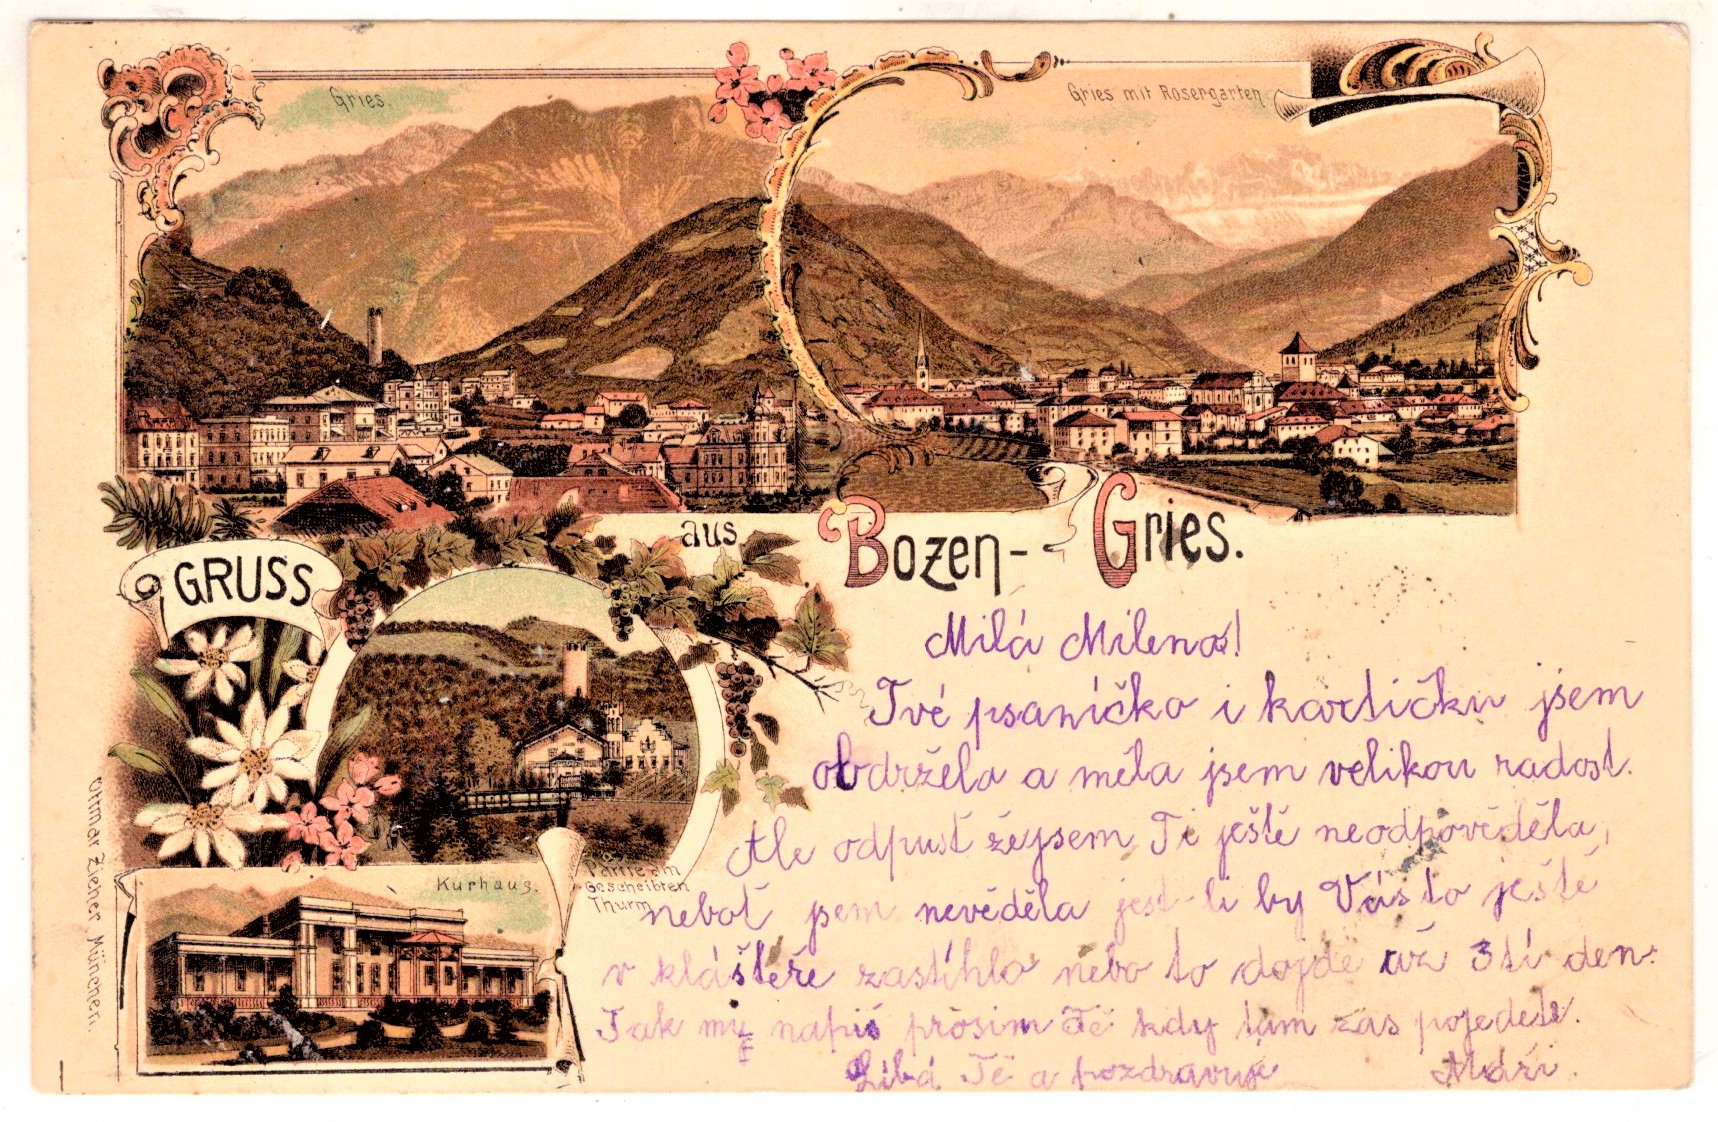 Gries.
Gries mit Rosengarten
GRUSS
aus
Bozen-Gries.
Partie am
Gescheibten
Thurm
Kurhaus.
Ottmar Zieher, München.
Milá Mileno!
Tvé psaníčko i kartičku jsem
obdržela a měla jsem velikou radost.
Ale odpusť žejsem Ti ještě neodpověděla,
neboť jsem nevěděla jest-li by Vás to ještě
v klášteře zastihlo nebo to dojde až 3tí den.
Tak mě napiš prosím Tě kdy tam zas pojedete.
Líbá Tě a pozdravuje